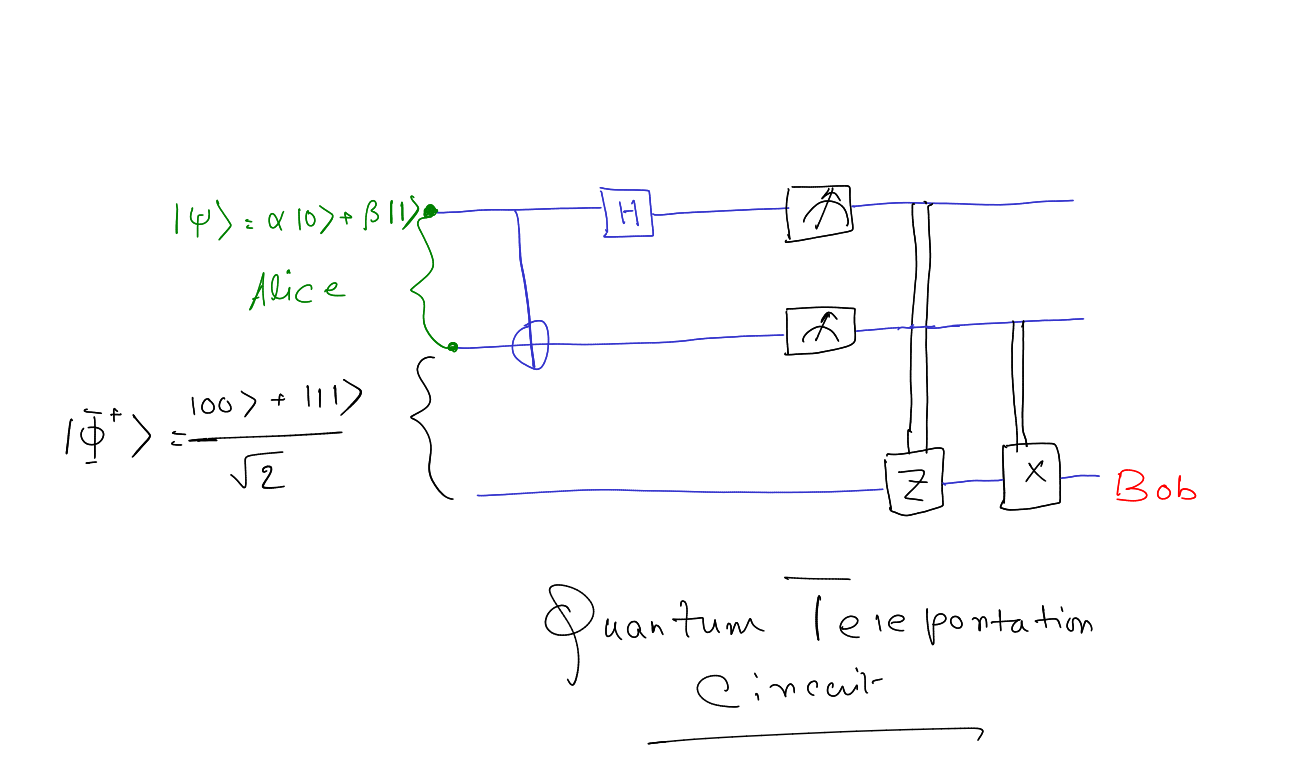 |ψ⟩ = α|0⟩ + β|1⟩
H
Alice
|Φ⁺⟩ = |00⟩ + |11⟩
√2
Z
X
Bob
Quantum Teleportation
Circuit